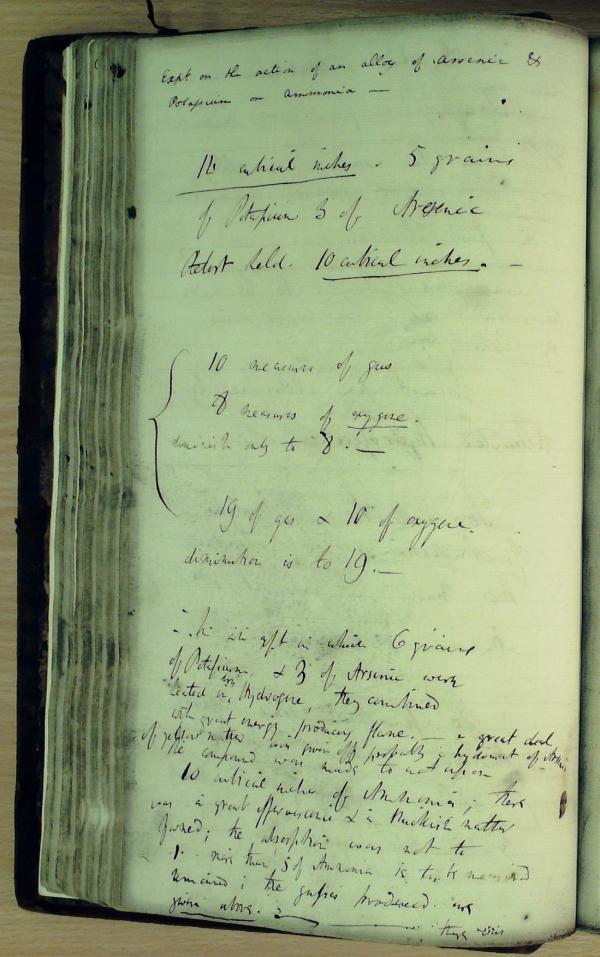 Expt on the action of an alloy of arsenic &
Potassium on Ammonia —
14 cubical inches . 5 grains
of Potassium 3 of Arsenic
Retort held. 10 cubical inches. —
10 measures of gas
8 measures of oxygene.
diminish only to 8. —
19 of gas & 10 of oxygene.
diminution is to 19. —
In an expt in which 6 grains
of Potassium, & 3 of Arsenic were
heated in Hydrogene, they combined
with great energy producing flame. — a great deal
of yellow matter was given off probably a hyduret of Arsenic
The compound was made to act upon
10 cubical inches of Ammonia; there
was a great effervescence & a blackish matter
formed; the absorption was not to
more than 5 of Ammonia
remained; the gasses produced were
given above. —
there was